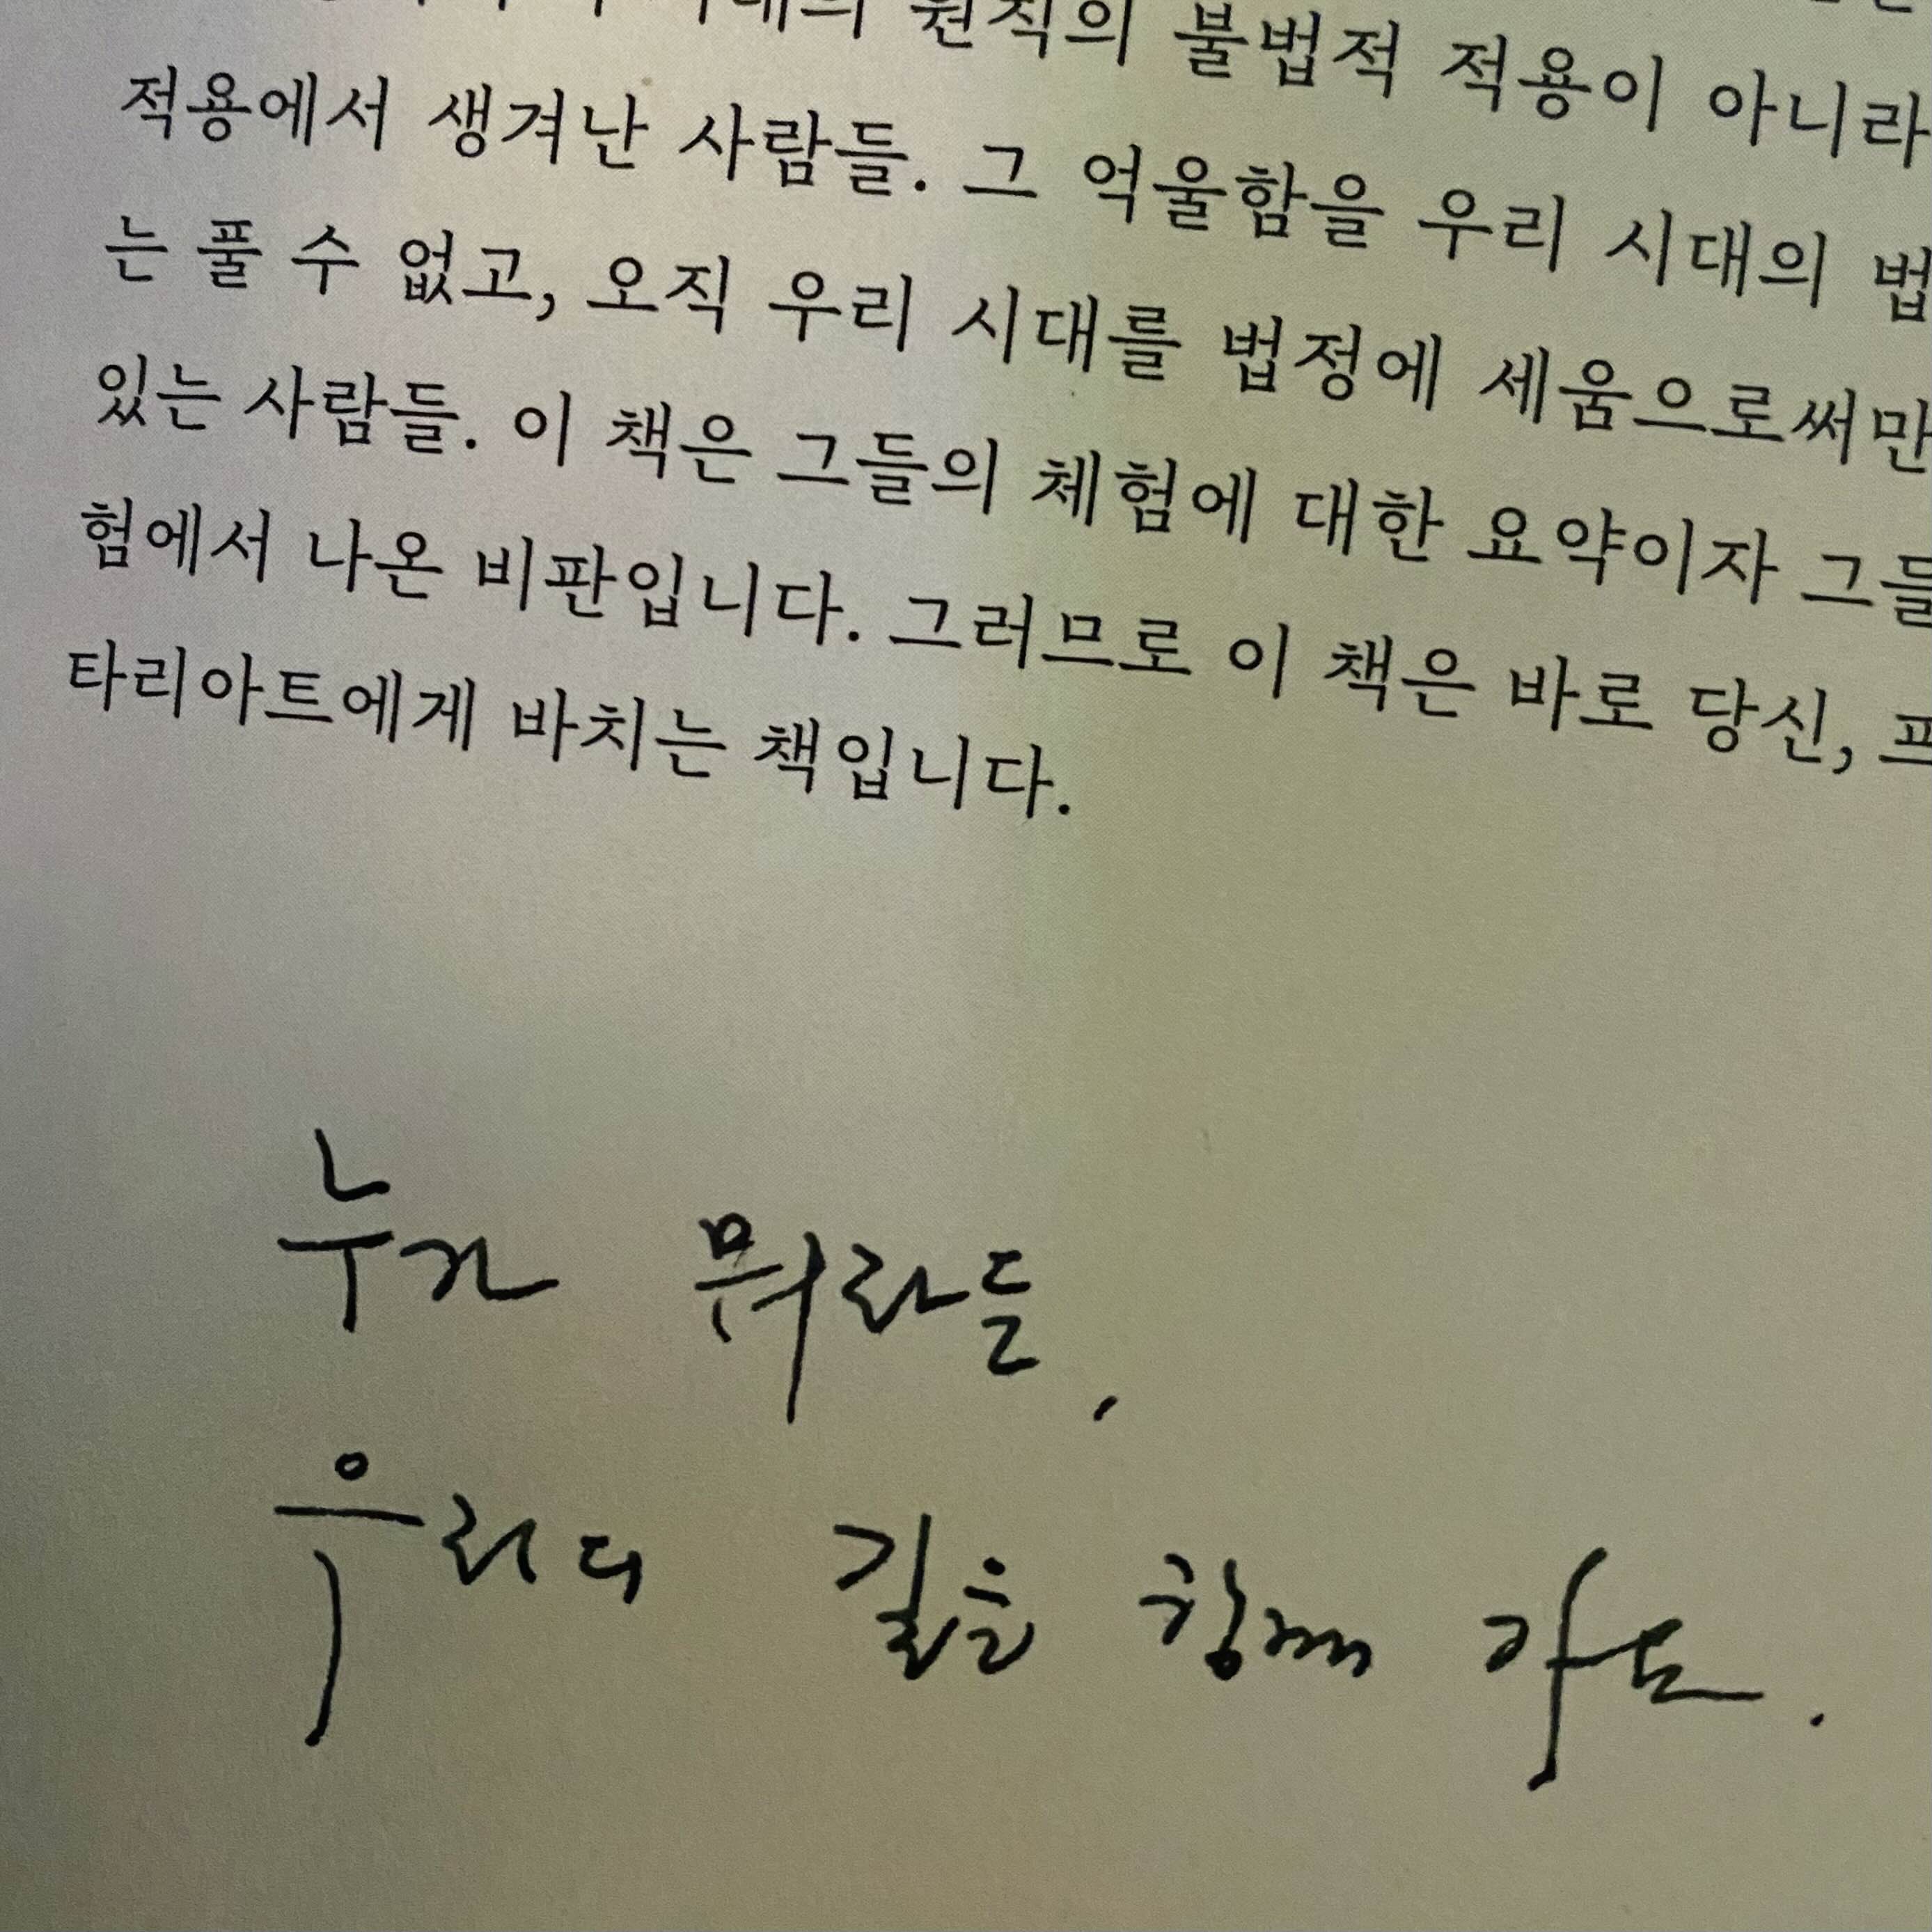 원칙의 불법적 적용이 아니라
적용에서 생겨난 사람들. 그 억울함을 우리 시대의 법
는 풀 수 없고, 오직 우리 시대를 법정에 세움으로써만
있는 사람들. 이 책은 그들의 체험에 대한 요약이자 그들
험에서 나온 비판입니다. 그러므로 이 책은 바로 당신, 프
타리아트에게 바치는 책입니다.
누가 뭐라든,
우리의 길을 함께 가요.